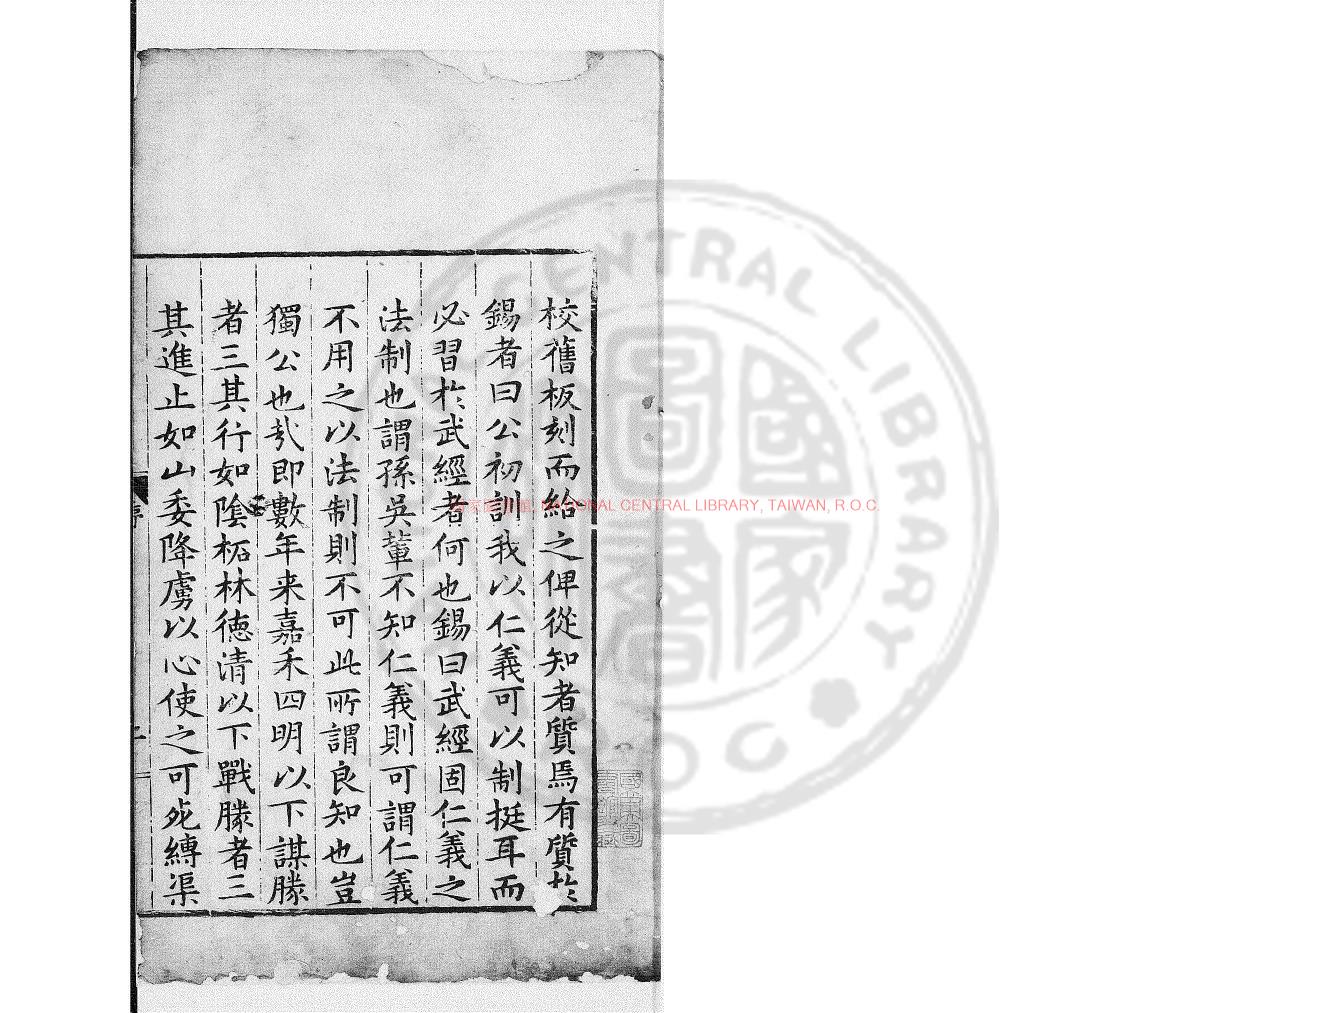 校舊板刻而給之俾從知者質焉有質於
錫者曰公初訓我以仁義可以制挺耳而
必習於武經者何也錫曰武經固仁義之
法制也謂孫吳軰不知仁義則可謂仁義
不用之以法制則不可此所謂良知也豈
獨公也㢤即數年来嘉禾四明以下謀勝
者三其行如陰柘林德清以下戰勝者三
其進止如山委降虜以心使之可死縛渠
序
國家圖書館, NATIONAL CENTRAL LIBRARY, TAIWAN, R.O.C.
CENTRAL LIBRARY
R O C
國家圖書